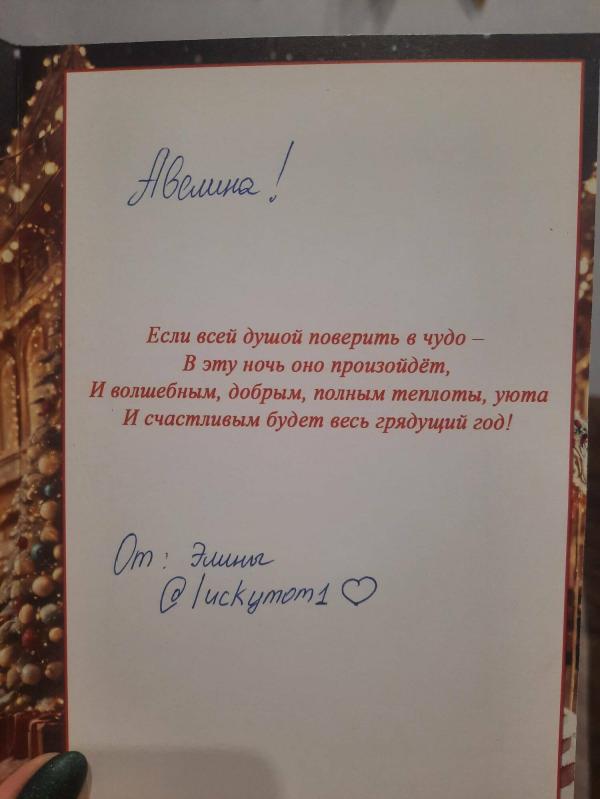 Авелина!
Если всей душой поверить в чудо –
В эту ночь оно произойдёт,
И волшебным, добрым, полным теплоты, уюта
И счастливым будет весь грядущий год!
От: Элины
@luckymom1